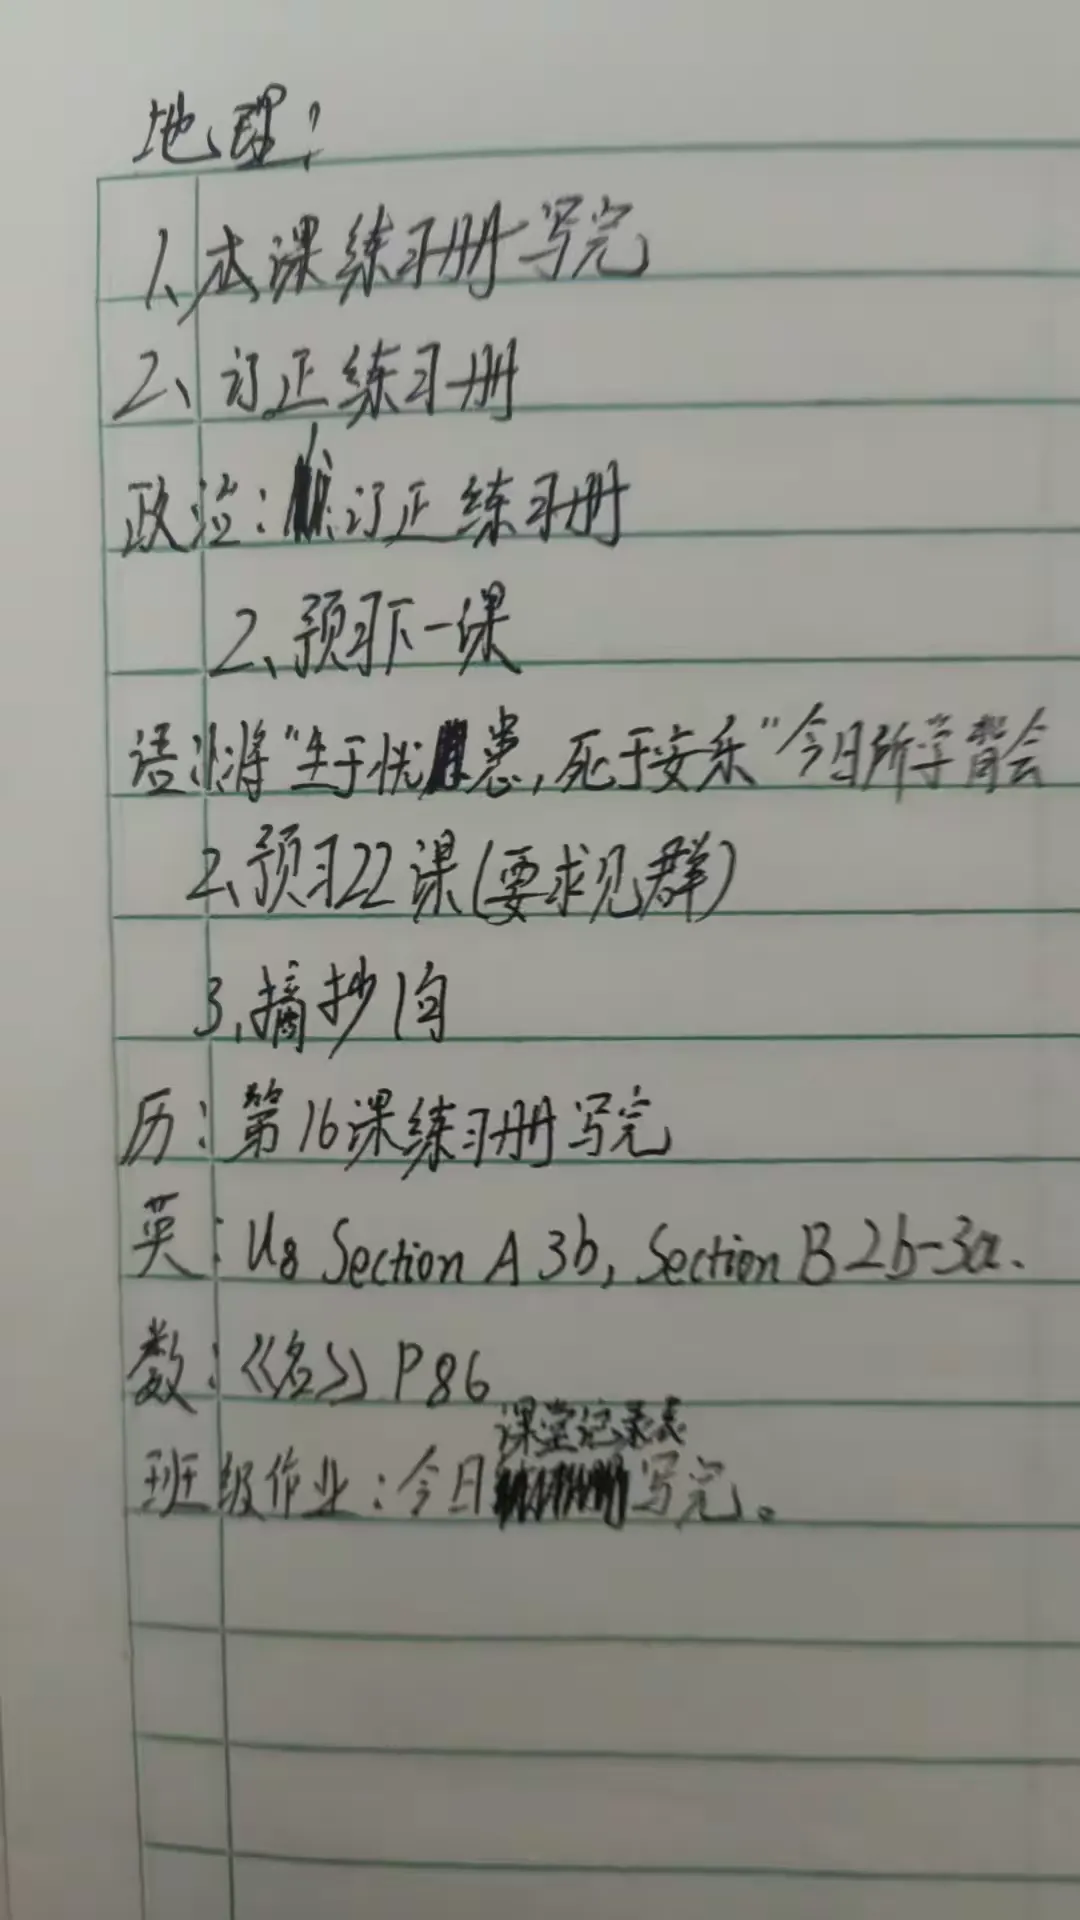 地理：
1、本课练习册写完
2、订正练习册
政治：1、订正练习册
2、预习下一课
语：1、将“生于忧患，死于安乐”今日所学背会
2、预习22课（要求见群）
3、摘抄1句
历：第16课练习册写完
英：U8 Section A 3b, Section B 2b-3a.
数：《名》P86
课堂记录表
班级作业：今日写完。